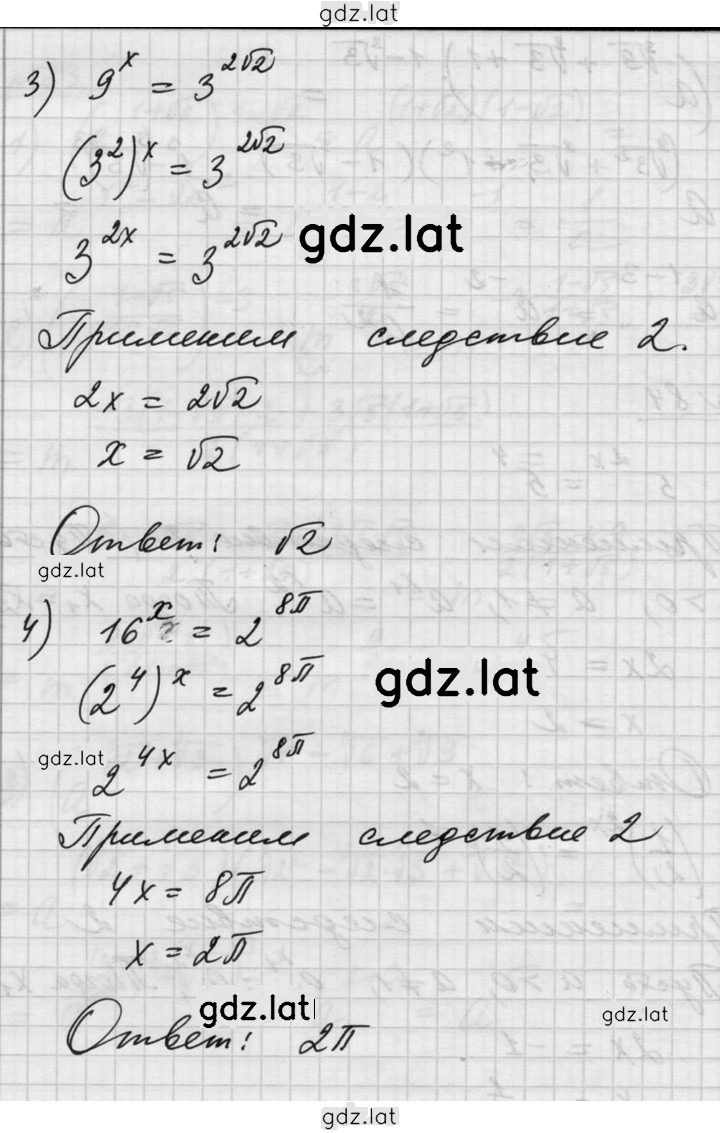 gdz.lat
3) 9^x = 3^{2√2}
(3^2)^x = 3^{2√2}
3^{2x} = 3^{2√2}
gdz.lat
Применим следствие 2.
2x = 2√2
x = √2
Ответ: √2
gdz.lat
4) 16^x = 2^{8π}
(2^4)^x = 2^{8π}
gdz.lat
gdz.lat
2^{4x} = 2^{8π}
Применим следствие 2
4x = 8π
x = 2π
gdz.lat
gdz.lat
Ответ: 2π
gdz.lat